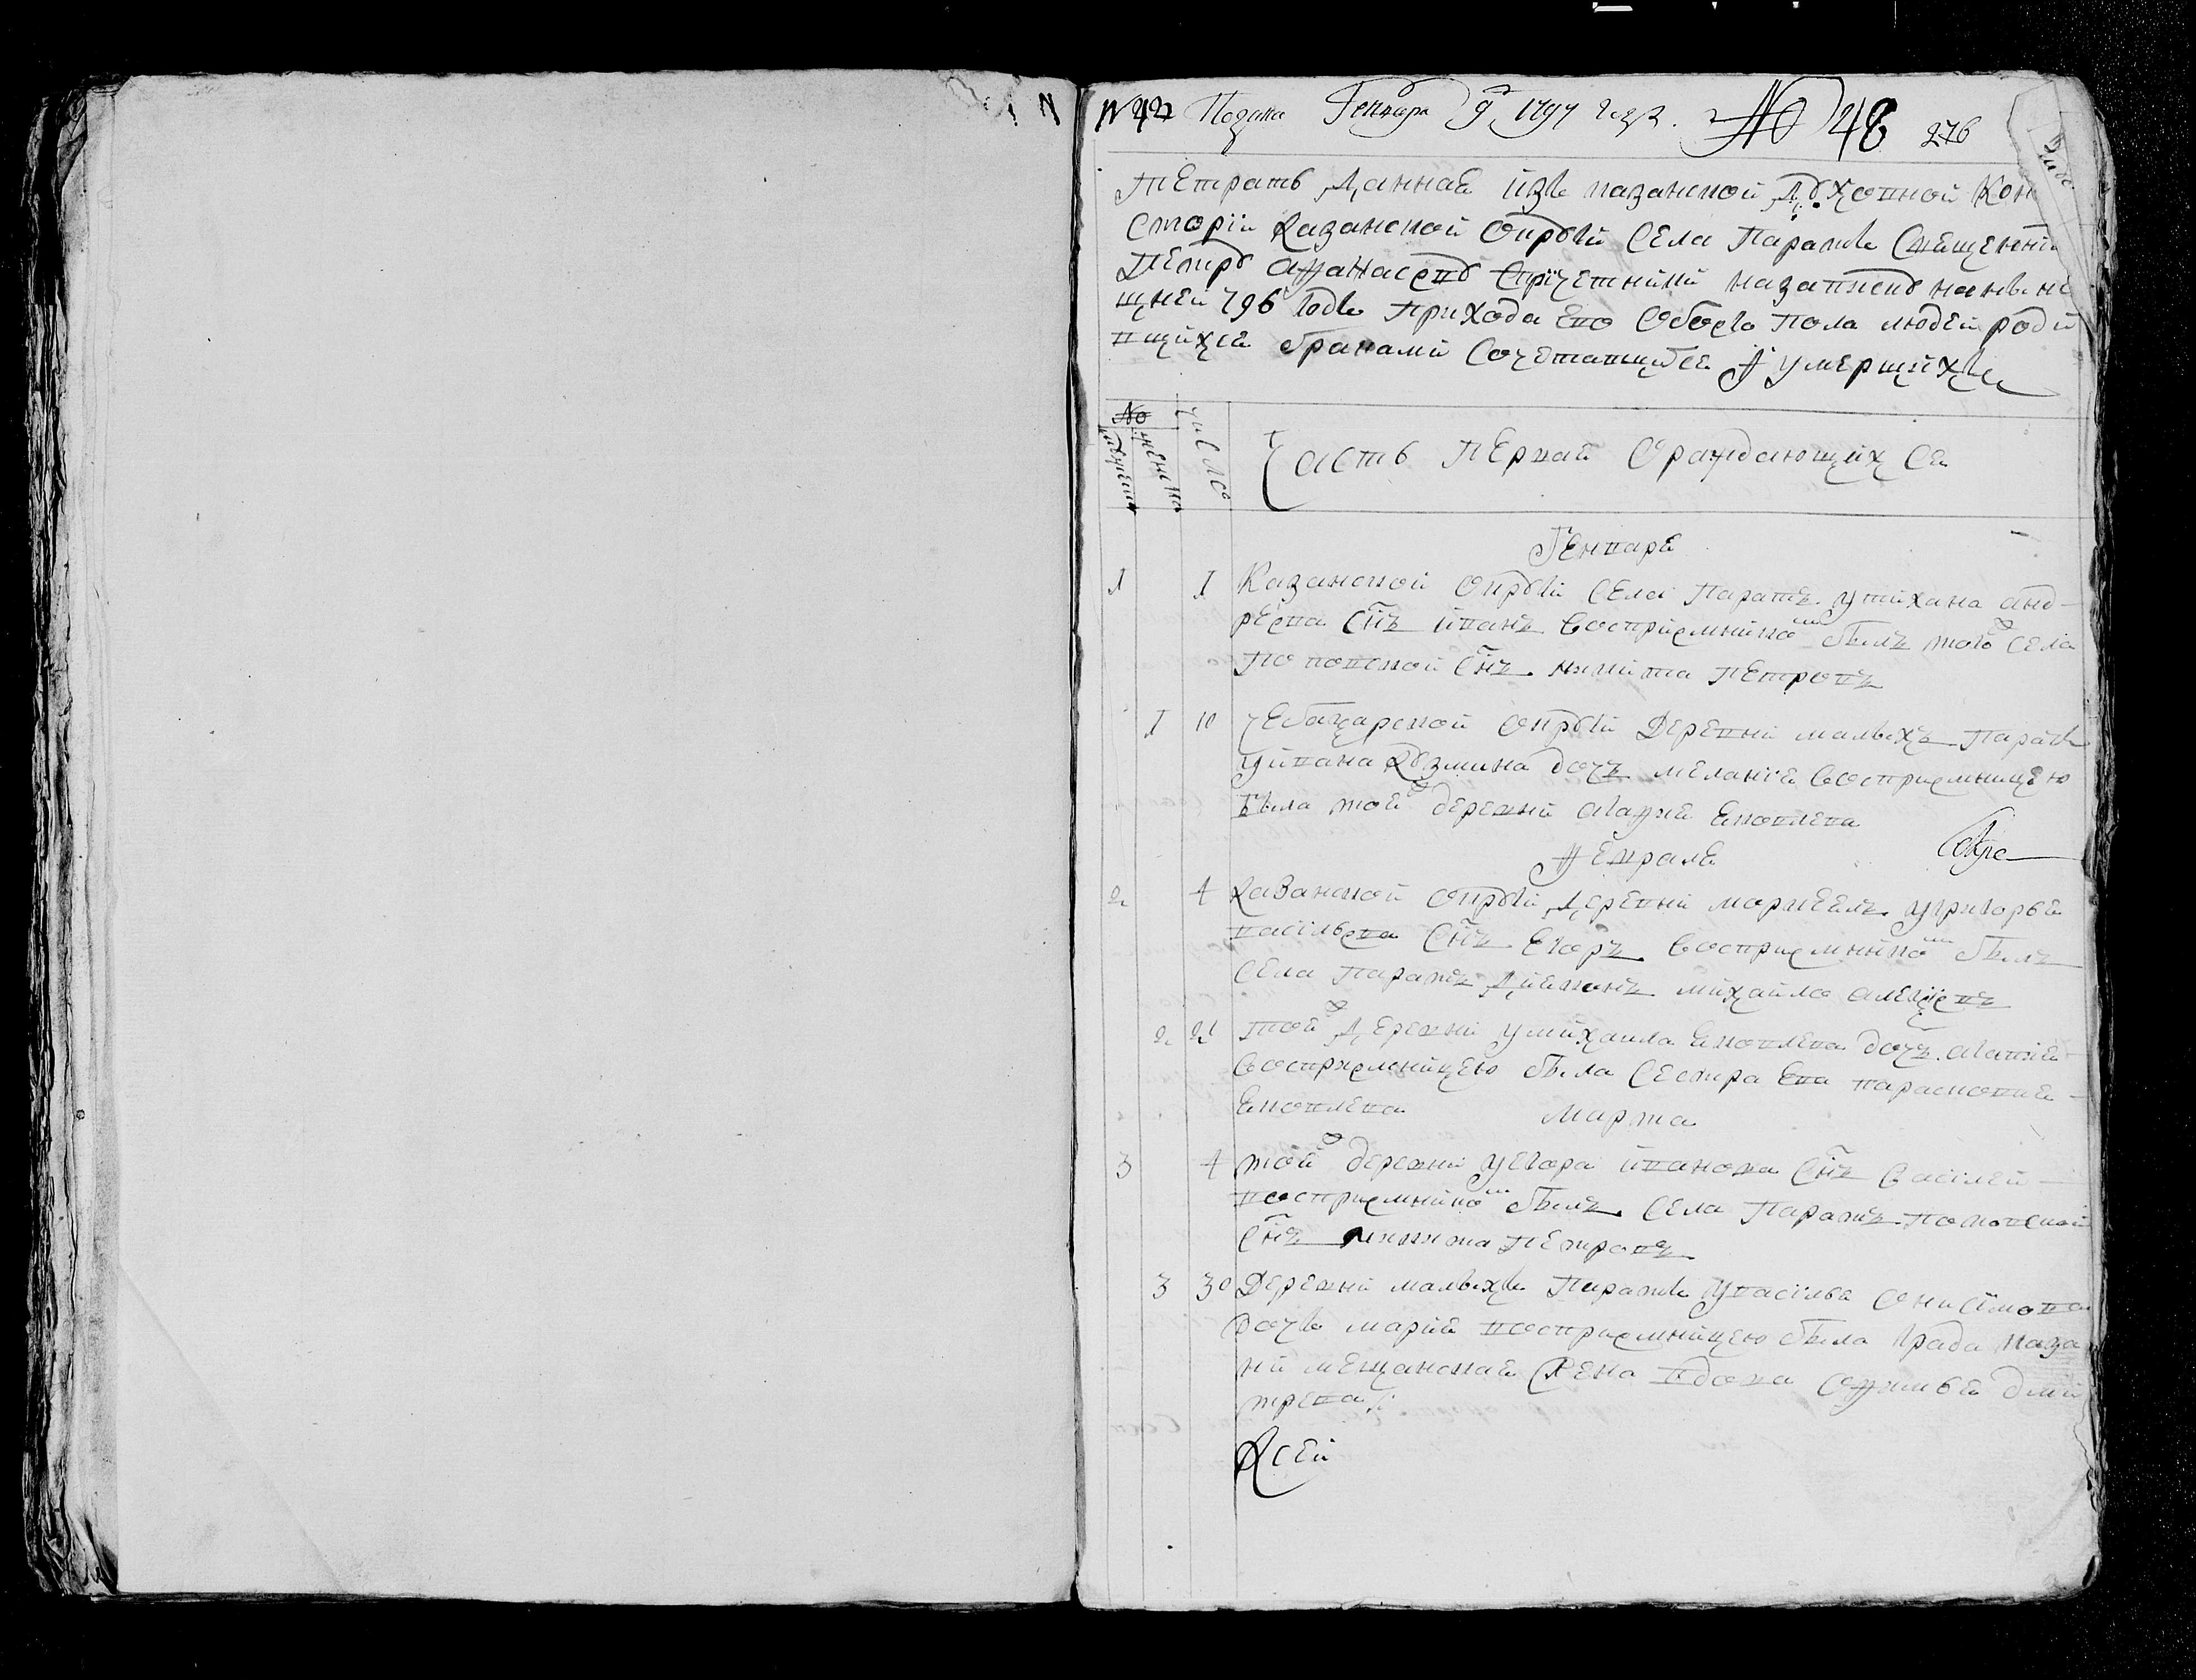 № 42 Подана Генваря 9 1797 года. № 48 276
Тетрать даннаѣ изъ казанской духовной кон
систории казанской округи села Паратъ священни
петру афанасеву спричетники назаписку нанынѣ
шней 796 годъ прихода ево обоего пола людей роди
вшихся браками сочетавшихся и умершихъ
№ число
мужеска женска
Часть первая ораждающихся
Генваря
1 1 Казанской округи села Паратъ утихана анд-
реева снъ иванъ восприемникомъ былъ того ж села
поповской снъ никита петровъ
1 10 чебоцарской округи деревни малыхъ Паратъ
уивана кузмина дочь мелания восприемницею
была той ж деревни агафия яковлева
февраля
2 4 казанской округи деревни мориеелъ угригорья
васильева снъ егоръ восприемникомъ былъ
села Паратъ диеконъ михайло алексеевъ
2 21 той ж деревни умихаила яковлева дочь агапия
восприемницею была сестра ева парасковия
яковлева марта
3 4 той ж деревни уегора иванова снъ василей
восприемникомъ былъ села Паратъ поповской
снъ никита петровъ
3 30 Деревни малыхъ Паратъ увасилья онисимова
дочь мария восприемницею была града каза
ни мещанская жена вдова софия дми
трева
ксей